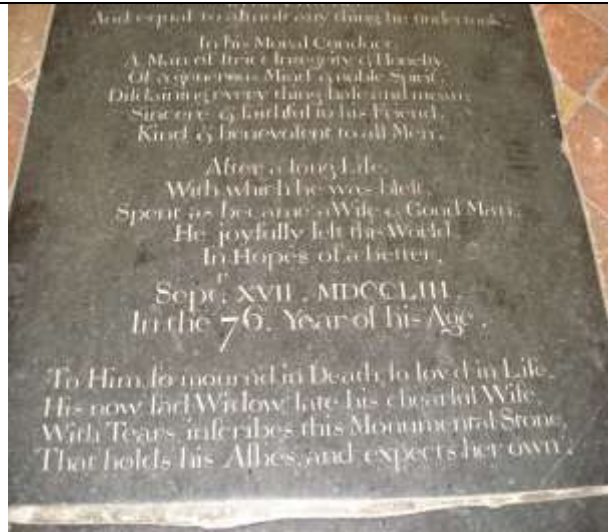 And equal to almost any thing he undertook.
In his Moral Conduct,
A Man of ſtrict Integrity & Honeſty,
Of a generous Mind & noble Spirit,
Diſdaining every thing baſe and mean;
Sincere & faithful to his Friend,
Kind & benevolent to all Men.
After a long Life,
With which he was bleſt,
Spent as became a Wiſe & Good Man,
He joyfully left this World
In Hopes of a better,
Sept.r XVII. MDCCLIII.
In the 76. Year of his Age.
To Him, ſo mourn'd in Death, ſo lov'd in Life,
His now ſad Widow, late his chearful Wife,
With Tears, inſcribes this Monumental Stone,
That holds his Aſhes, and expects her own.